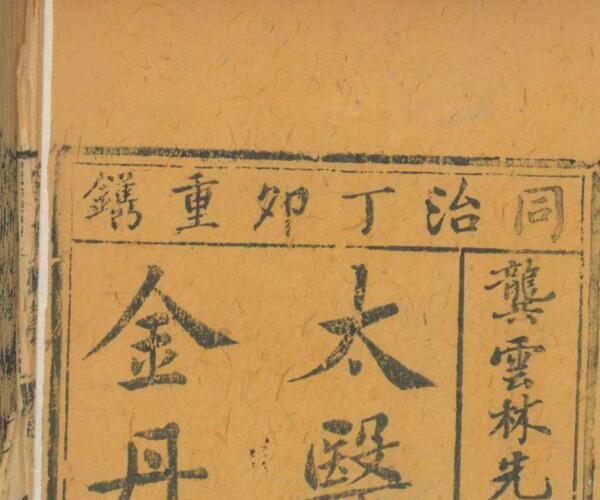 同治丁卯重鐫
龔雲林先
太醫
金丹